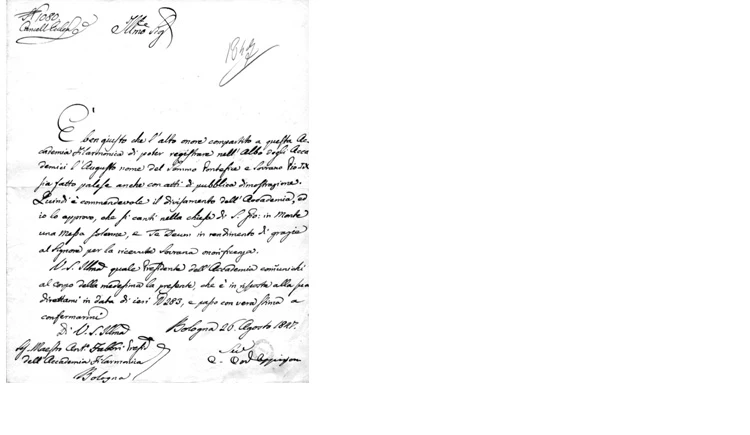 N. 1080.
Cancell. Eccles.
Illmo Sig.
1847
È ben giusto che l'alto onore compartito a questa Ac-
cademia Filarmonica di poter registrare nell'Albo degli Acca-
demici l'Augusto nome del Sommo Pontefice e Sovrano Pio IX
sia fatto palese anche con atti di pubblica dimostrazione.
Quindi è commendevole il divisamento dell'Accademia, ed
io lo approvo, che si canti nella chiesa di S. Gio: in Monte
una Messa solenne, e Te Deum in rendimento di grazie
al Signore per la ricevuta Sovrana onorificenza.
V. S. Illma quale Presidente dell'Accademia comunichi
al corpo della medesima la presente, che è in risposta alla sua
direttami in data di ieri N 283, e passo con vera stima a
confermarmi
Di V. S. Illma
Bologna 26. Agosto 1847.
Sig. Maestro Ant. Fabbri Presid.
dell'Accademia Filarmonica
Bologna